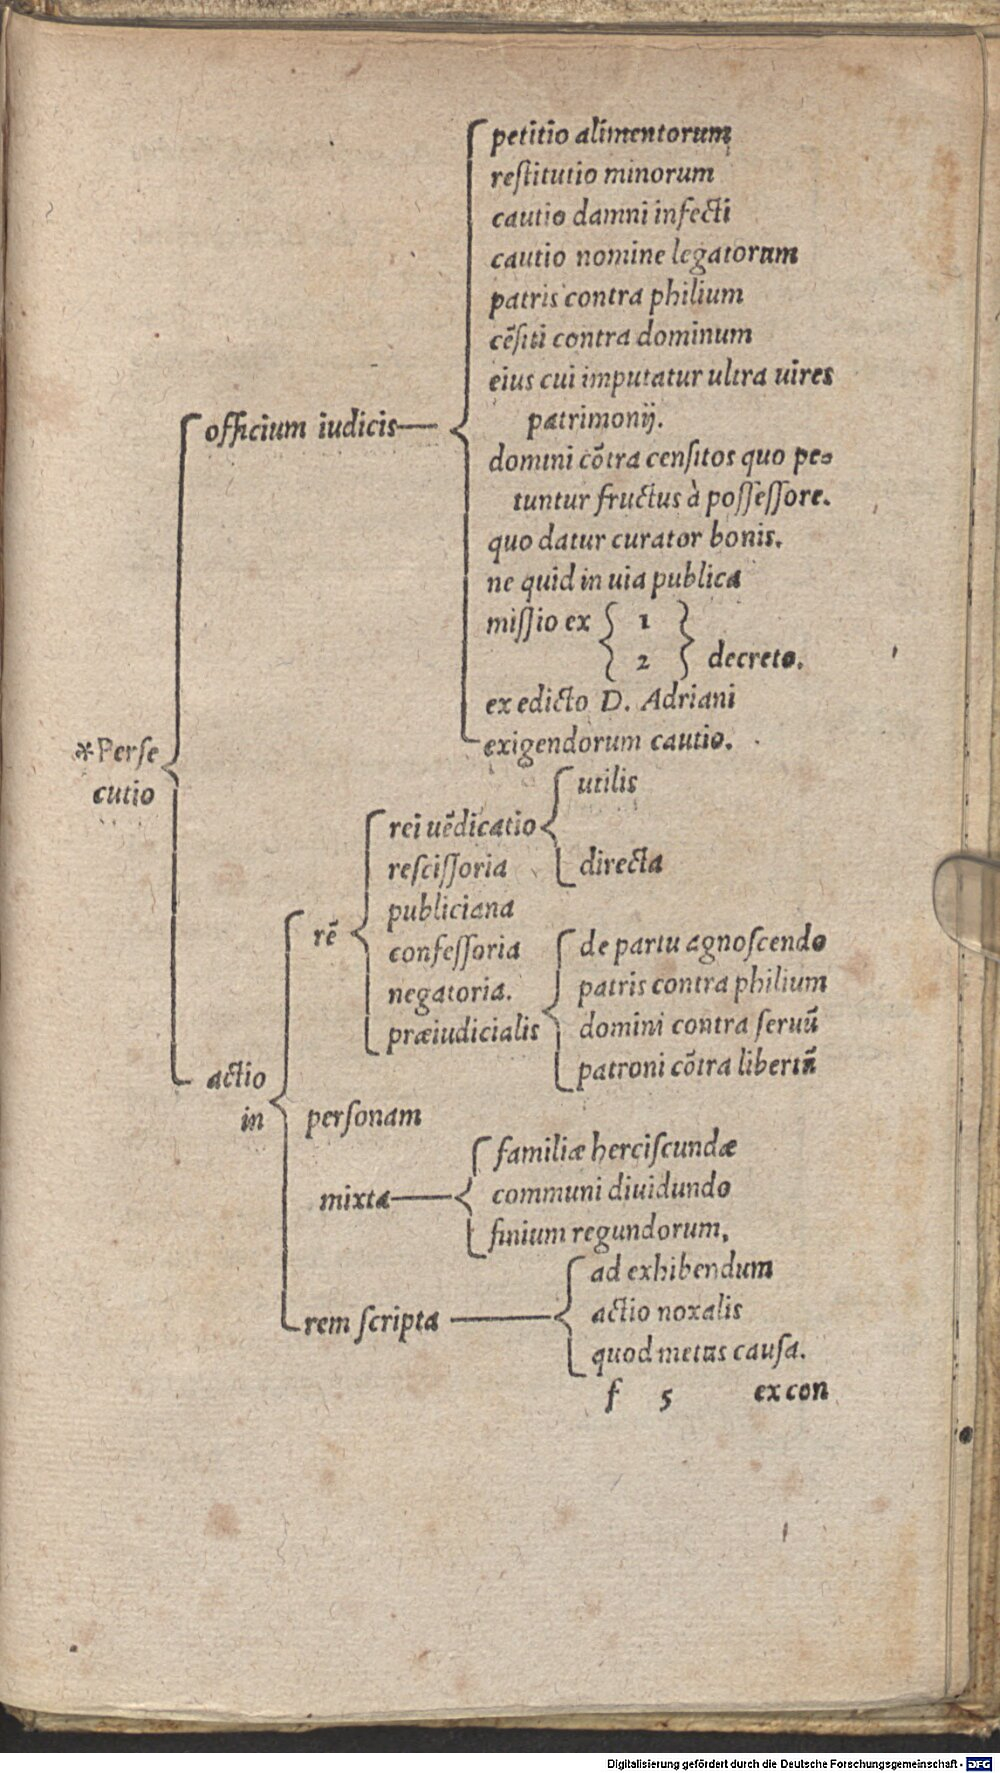 petitio alimentorum
reſtitutio minorum
cautio damni infecti
cautio nomine legatorum
patris contra philium
cēſiti contra dominum
eius cui imputatur ultra uires
patrimonij.
officium iudicis
domini cōtra cenſitos quo pe=
tuntur fructus à poſſeſſore.
quo datur curator bonis.
ne quid in uia publica
miſſio ex 1
2 decreto.
ex edicto D. Adriani
exigendorum cautio.
*Perſe
cutio
utilis
rei uēdicatio
directa
reſciſſoria
publiciana
rē
confeſſoria
negatoria.
præiudicialis
de partu agnoſcendo
patris contra philium
domini contra ſeruū
patroni cōtra libertū
actio
in
perſonam
familiæ herciſcundæ
mixta
communi diuidundo
finium regundorum,
ad exhibendum
rem ſcripta
actio noxalis
quod metus cauſa.
f 5 ex con
Digitalisierung gefördert durch die Deutsche Forschungsgemeinschaft - DFG